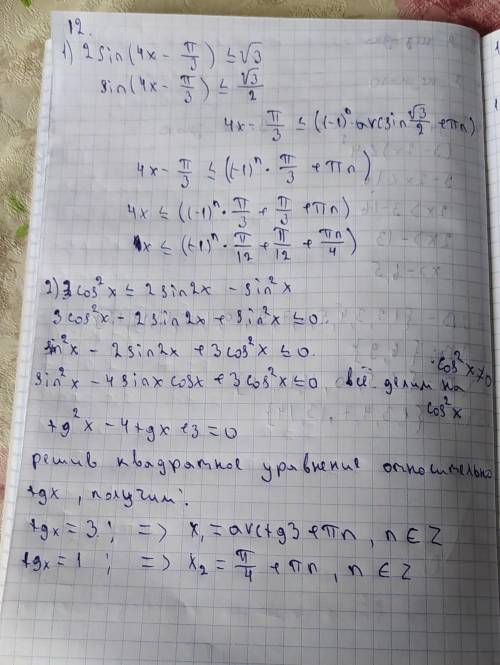 12.
1) 2sin(4x - π/3) ≤ √3
sin(4x - π/3) ≤ √3/2
4x - π/3 ≤ ((-1)ⁿ · arcsin √3/2 + πn)
4x - π/3 ≤ (-1)ⁿ · π/3 + πn)
4x ≤ ((-1)ⁿ · π/3 + π/3 + πn)
x ≤ (-1)ⁿ · π/12 + π/12 + πn/4)
2) 3cos²x ≤ 2sin2x - sin²x
3cos²x - 2sin2x + sin²x ≤ 0.
sin²x - 2sin2x + 3cos²x ≤ 0.
sin²x - 4sinx cosx + 3cos²x ≤ 0, всё делим на cos²x
· cos²x ≠ 0
tg²x - 4tgx + 3 = 0
решив квадратное уравнение относительно
tgx, получим:
tgx = 3; => x₁ = arctg3 + πn, n ∈ Z
tgx = 1; => x₂ = π/4 + πn, n ∈ Z